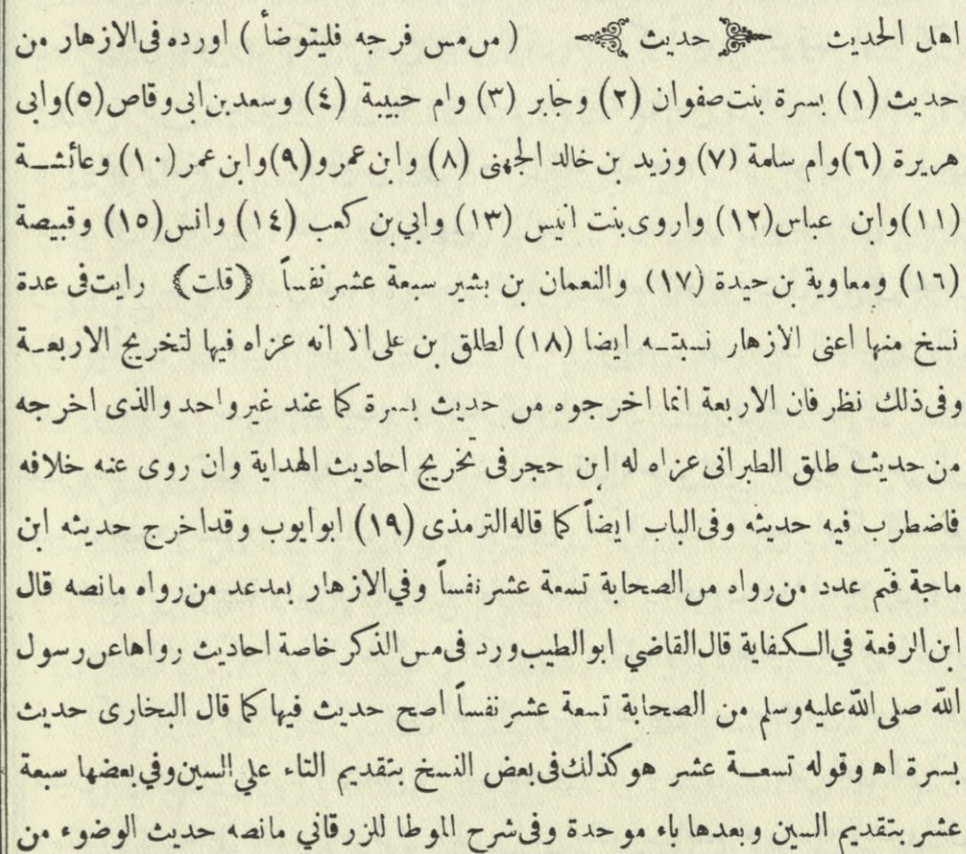 اهل الحديث حديث ( من مس فرجه فليتوضأ ) اورده فى الازهار من
حديث (١) بسرة بنت صفوان (٢) وجابر (٣) وام حبيبة (٤) وسعد بن ابى وقاص (٥) وابى
هريرة (٦) وام سلمة (٧) وزيد بن خالد الجهنى (٨) وابن عمرو (٩) وابن عمر (١٠) وعائشــة
(١١) وابن عباس (١٢) واروى بنت انيس (١٣) وابي بن كعب (١٤) وانس (١٥) وقبيصة
(١٦) ومعاوية بن حيدة (١٧) والنعمان بن بشير سبعة عشر نفساً ﴿قلت﴾ رايت فى عدة
نسخ منها اعنى الازهار نسبتــه ايضا (١٨) لطلق بن على الا انه عزاه فيها لتخريج الاربعــة
وفى ذلك نظر فان الاربعة انما اخرجوه من حديث بسرة كما عند غير واحد والذى اخرجه
من حديث طلق الطبرانى عزاه له ابن حجر فى تخريج احاديث الهداية وان روى عنه خلافه
فاضطرب فيه حديثه وفى الباب ايضاً كما قاله الترمذى (١٩) ابو ايوب وقد اخرج حديثه ابن
ماجة فتم عدد من رواه من الصحابة تسعة عشر نفساً وفي الازهار بعد عد من رواه ما نصه قال
ابن الرفعة في الــكفاية قال القاضي ابو الطيب ورد فى مس الذكر خاصة احاديث رواها عن رسول
الله صلى الله عليه وسلم من الصحابة تسعة عشر نفساً اصح حديث فيها كما قال البخارى حديث
بسرة اه وقوله تسعــة عشر هو كذلك فى بعض النسخ بتقديم التاء علي السين وفي بعضها سبعة
عشر بتقديم السين وبعدها باء موحدة وفى شرح الموطا للزرقاني ما نصه حديث الوضوء من